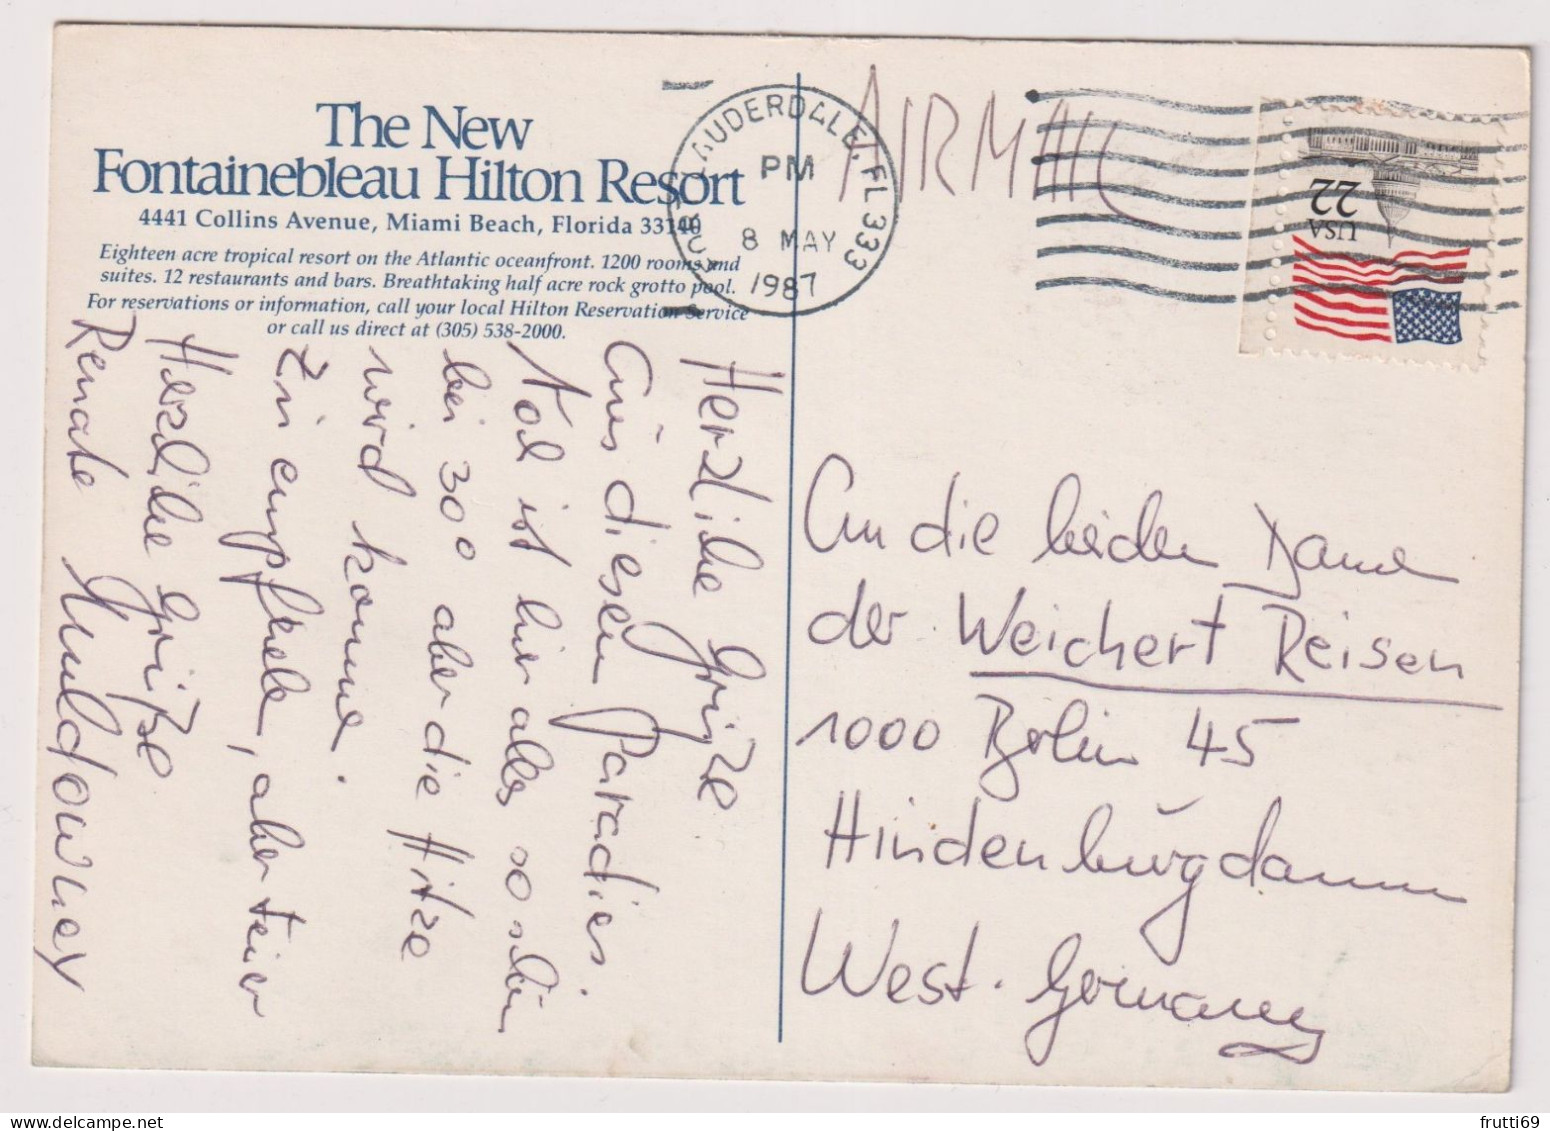 The New
Fontainebleau Hilton Resort
4441 Collins Avenue, Miami Beach, Florida 33140
Eighteen acre tropical resort on the Atlantic oceanfront. 1200 rooms and
suites. 12 restaurants and bars. Breathtaking half acre rock grotto pool.
For reservations or information, call your local Hilton Reservation Service
or call us direct at (305) 538-2000.
Herzliche Grüße
aus diesem Paradies.
Mal ist hier alles so schön
bei 30° aber die Hitze
wird komme.
Zu empfehle, aber teier
Herzliche Grüße
Renate Muldowney
LAUDERDALE, FL 333
PM
8 MAY
1987
AIRMAIL
USA
22
An die beiden Damen
der Weichert Reisen
1000 Berlin 45
Hindenburgdamm
West. Germany
frutti69